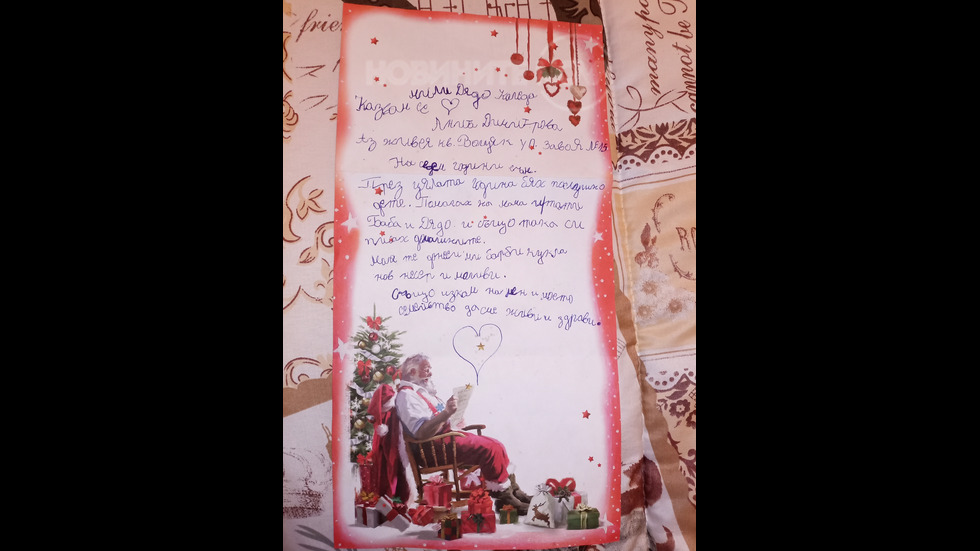 НОВИНИТЕ
мили Дядо Коледа
Казвам се
Анита Димитрова
Аз живея кв. Воден ул. Завоя №15
На седем години съм.
През цялата година бях послушно
дете. Помагах на мама и татти
Баба и Дядо. и също така си
пишах домашните.
Моля те донеси ми барби кукла
нов несер и моливи.
Също искам на мен и моето
семейство да сме живи и здрави.
frie
cannot be